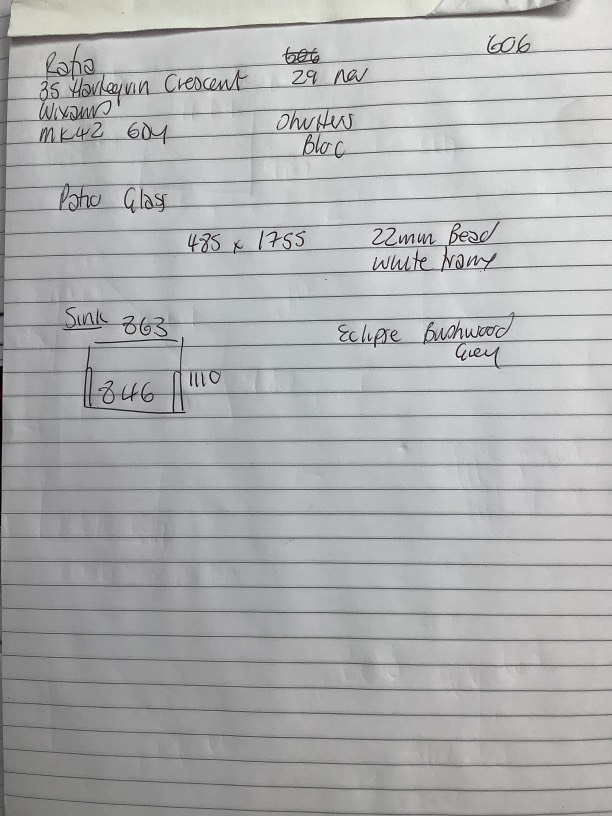 606
606
35 Harlequin Crescent 29 nov
Wixams
MK42 6DY
Shutters
Bloc
Patio Glass
485 x 1755
22mm Bead
White
Sink 863
846 1110
Eclipse Bushwood
Grey